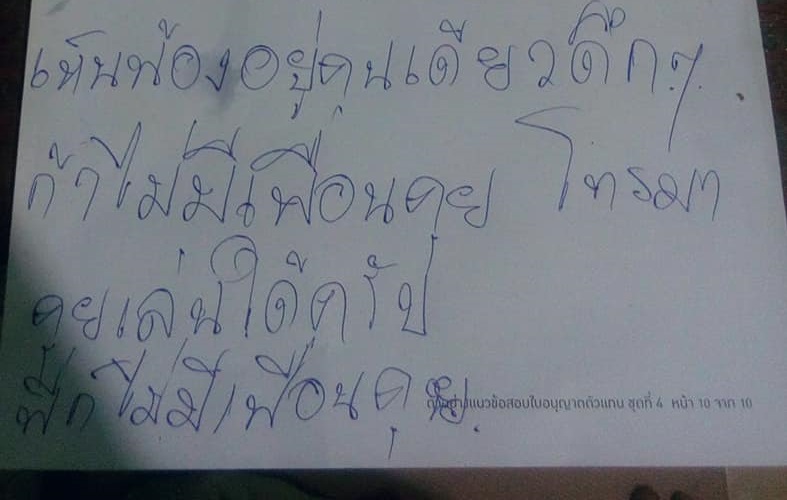 เห็นน้องอยู่คนเดียวดึกๆ.
ถ้าไม่มีเพื่อนคุย โทรมา
คุยเล่นได้ครับ
พี่ก็ไม่มีเพื่อนคุย.
ตัวอย่างแนวข้อสอบใบอนุญาตตัวแทน ชุดที่ 4 หน้า 10 จาก 10